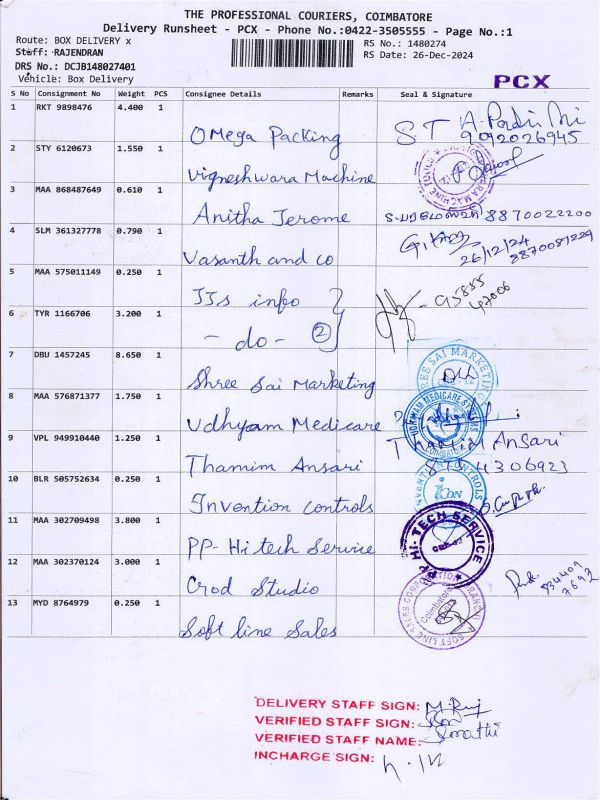 THE PROFESSIONAL COURIERS, COIMBATORE
Delivery Runsheet - PCX - Phone No.:0422-3505555 - Page No.:1
Route: BOX DELIVERY x
RS No.: 1480274
Staff: RAJENDRAN
RS Date: 26-Dec-2024
DRS No.: DCJB148027401
Vehicle: Box Delivery
PCX
S No Consignment No Weight PCS Consignee Details Remarks Seal & Signature
1 RKT 9898476 4.400 1 Omega Packing S T 9092026945
2 STY 6120673 1.550 1 Vigneshwara Machine
3 MAA 868487649 0.610 1 Anitha Jerome 8870022200
4 SLM 361327778 0.790 1 Vasanth and co 26/12/24 8870081229
5 MAA 575011149 0.250 1 JJs info
6 TYR 1166706 3.200 1 - do - 2
7 DBU 1457245 8.650 1 Shree Sai Marketing
8 MAA 576871377 1.750 1 Udhyam Medicare
9 VPL 949910440 1.250 1 Thamim Ansari Ansari
10 BLR 505752634 0.250 1 Invention controls
11 MAA 302709498 3.800 1 PP- Hi tech Service HI-TECH SERVICE
12 MAA 302370124 3.000 1 Crod Studio
13 MYD 8764979 0.250 1 Soft line Sales
DELIVERY STAFF SIGN:
VERIFIED STAFF SIGN:
VERIFIED STAFF NAME:
INCHARGE SIGN: